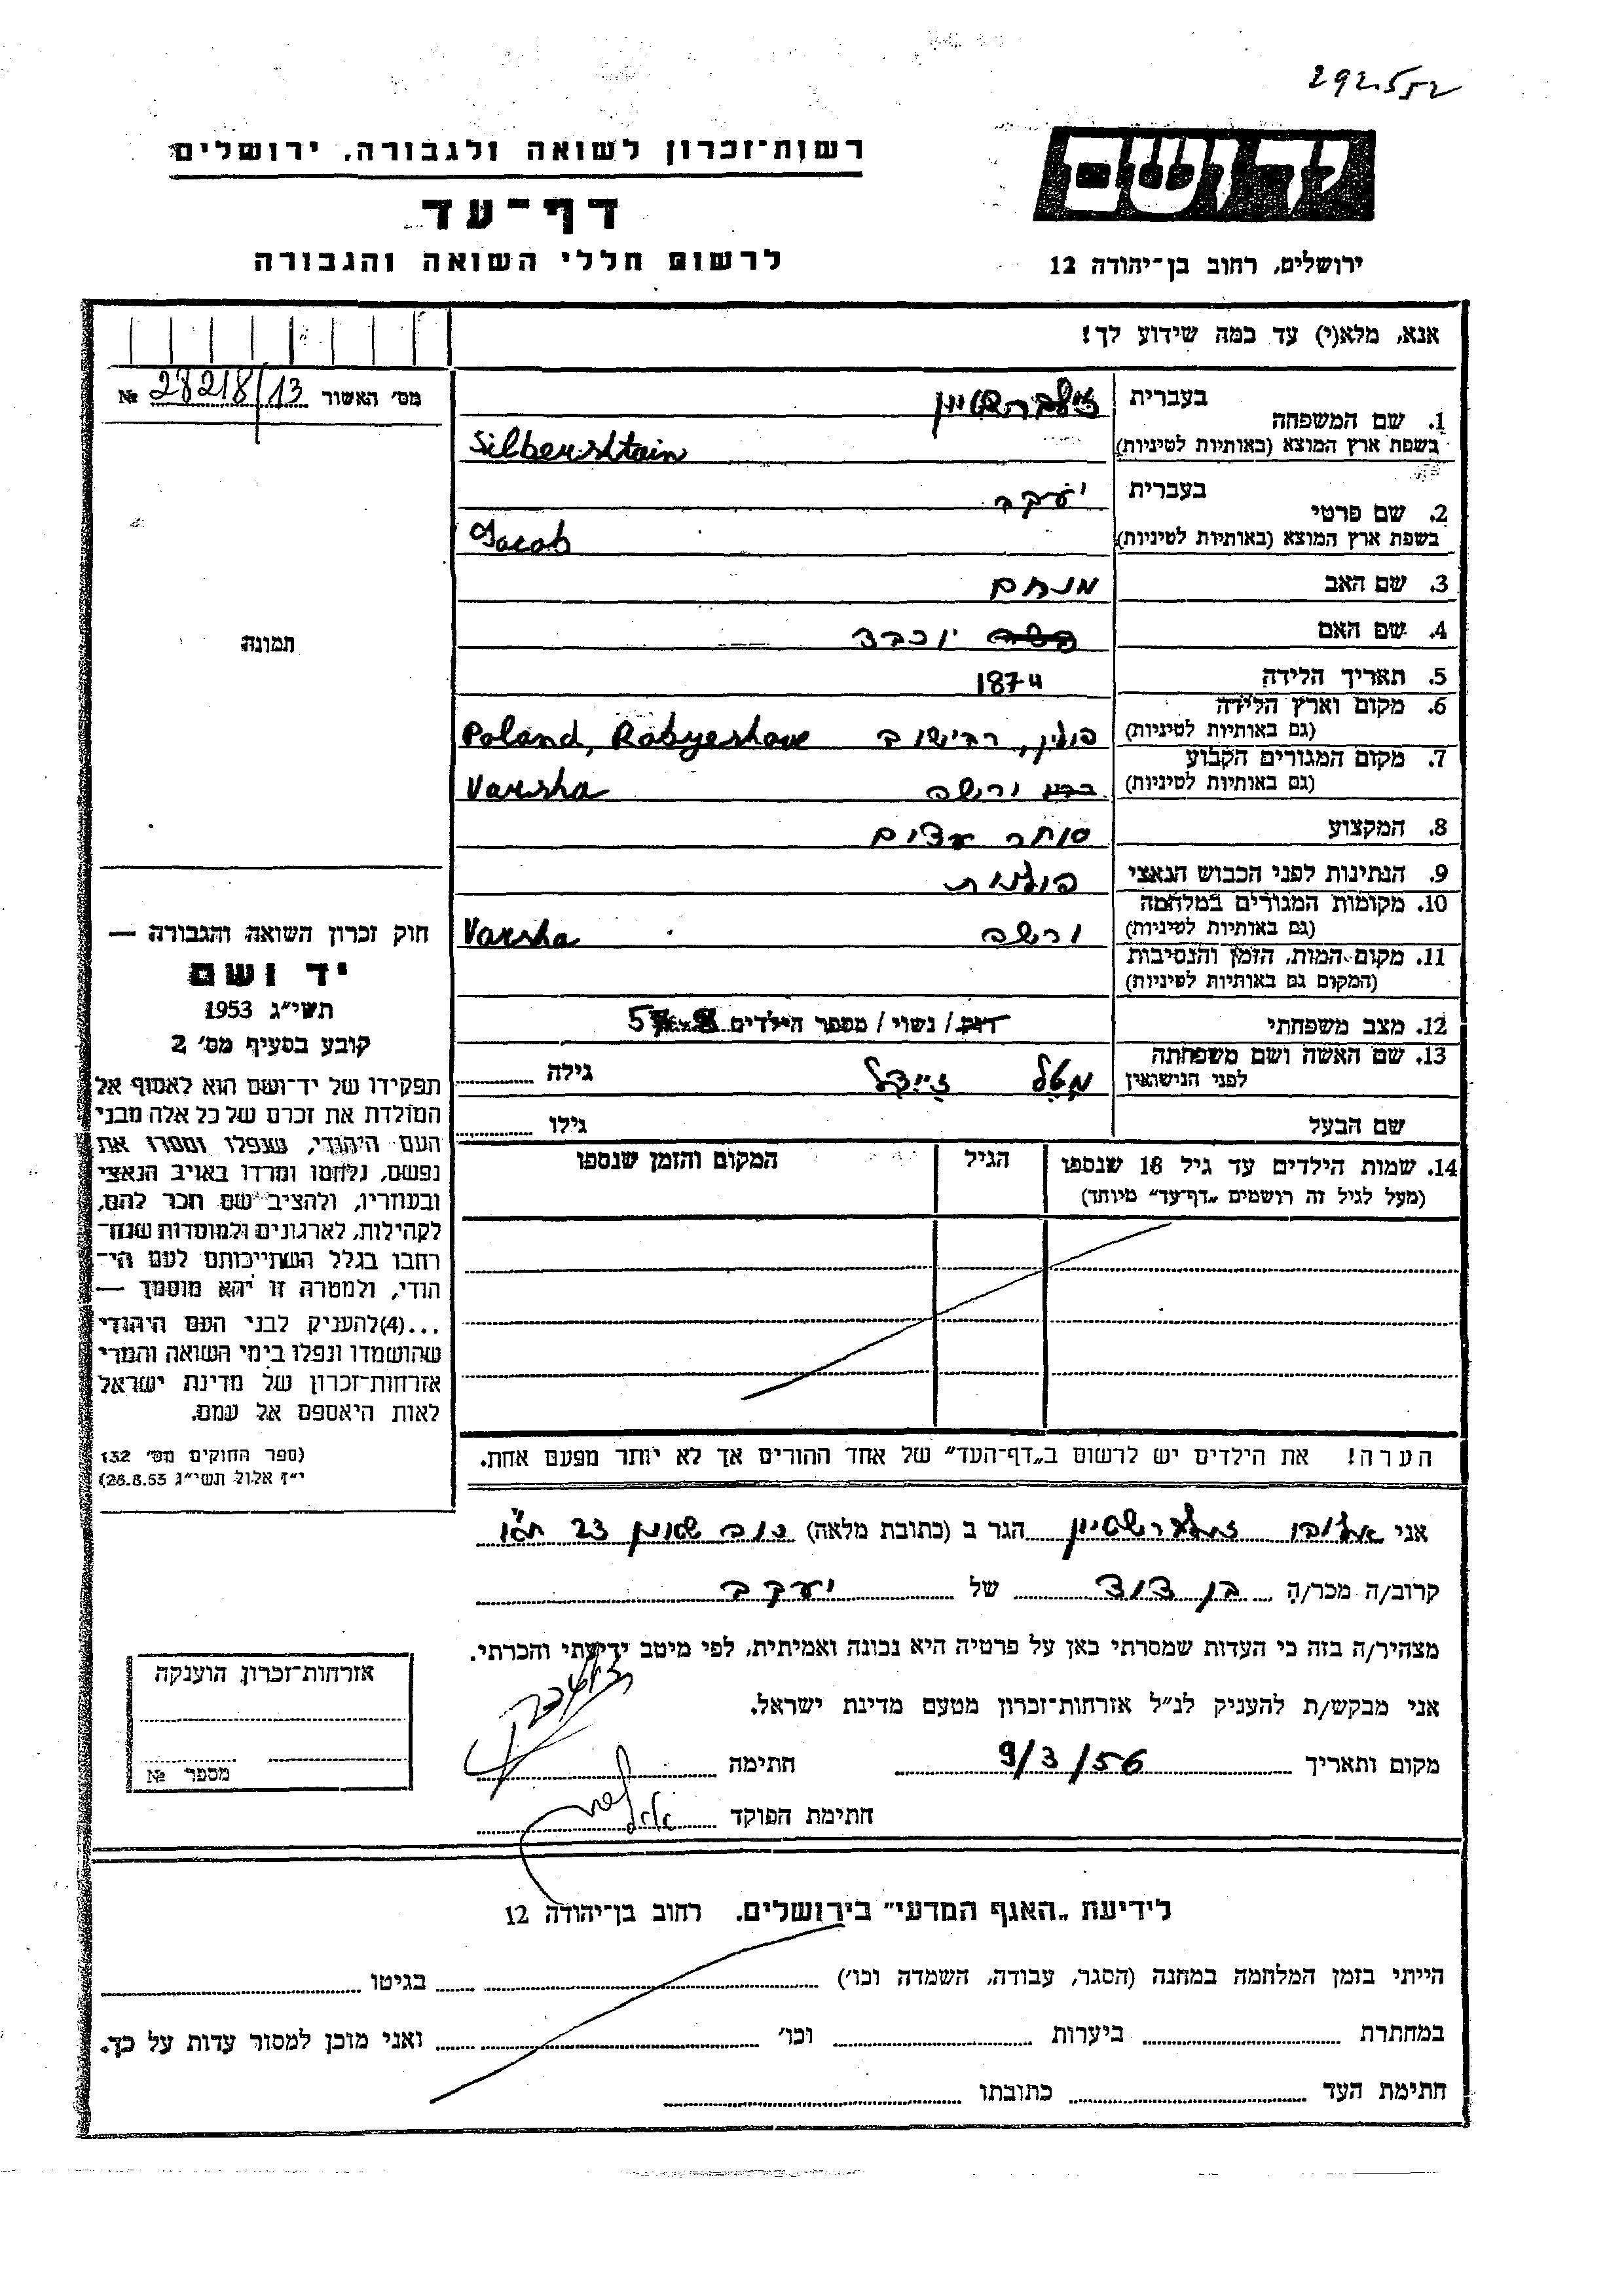 292552
רשות־זכרון לשואה ולגבורה, ירושלים
יד ושם
דף־עד
לרשום חללי השואה והגבורה
ירושלים, רחוב בן־יהודה 12
אנא, מלא(י) עד כמה שידוע לך!
מס׳ האשור 28218/13 №
1. שם המשפחה בעברית זילברשטיין
בשפת ארץ המוצא (באותיות לטיניות) Silbershtain
2. שם פרטי בעברית יעקב
בשפת ארץ המוצא (באותיות לטיניות) Jacob
3. שם האב מנחם
4. שם האם יוכבד
תמונה
5. תאריך הלידה 1874
6. מקום וארץ הלידה
(גם באותיות לטיניות) פולין, רבישוב Poland, Robyeshove
7. מקום המגורים הקבוע
(גם באותיות לטיניות) ורשה Varsha
8. המקצוע סוחר עצים
9. הנתינות לפני הכבוש הנאצי פולנית
10. מקומות המגורים במלחמה
(גם באותיות לטיניות) ורשה Varsha
11. מקום המות, הזמן והנסיבות
(המקום גם באותיות לטיניות)
12. מצב משפחתי רוק / נשוי / מספר הילדים 5
13. שם האשה ושם משפחתה
לפני הנישואין מטל זיידל גילה
שם הבעל גילו
14. שמות הילדים עד גיל 18 שנספו הגיל המקום והזמן שנספו
(מעל לגיל זה רושמים „דף־עד״ מיוחד)
חוק זכרון השואה והגבורה —
יד ושם
תשי״ג 1953
קובע בסעיף מס׳ 2
תפקידו של יד־ושם הוא לאסוף אל
המולדת את זכרם של כל אלה מבני
העם היהודי, שנפלו ומסרו את
נפשם, נלחמו ומרדו באויב הנאצי
ובעוזריו, ולהציב שם וזכר להם,
לקהילות, לארגונים ולמוסדות שנח־
רבו בגלל השתייכותם לעם הי־
הודי, ולמטרה זו יהא מוסמך —
...(4) להעניק לבני העם היהודי
שהושמדו ונפלו בימי השואה והמרי
אזרחות־זכרון של מדינת ישראל
לאות היאספם אל עמם.
(ספר החוקים מס׳ 132
י״ז אלול תשי״ג 28.8.53)
הערה! את הילדים יש לרשום ב„דף־העד״ של אחד ההורים אך לא יותר מפעם אחת.
אני זילברשטיין הגר ב (כתובת מלאה) 23
קרוב/ה מכר/ה בן דוד של יעקב
מצהיר/ה בזה כי העדות שמסרתי כאן על פרטיה היא נכונה ואמיתית, לפי מיטב ידיעתי והכרתי.
אני מבקש/ת להעניק לנ״ל אזרחות־זכרון מטעם מדינת ישראל.
מקום ותאריך 9/3/56 חתימה
חתימת הפוקד
אזרחות־זכרון הוענקה
מספר №
לידיעת „האגף המדעי״ בירושלים. רחוב בן־יהודה 12
הייתי בזמן המלחמה במחנה (הסגר, עבודה, השמדה וכו׳) בגיטו
במחתרת ביערות וכו׳ ואני מוכן למסור עדות על כך.
חתימת העד כתובתו